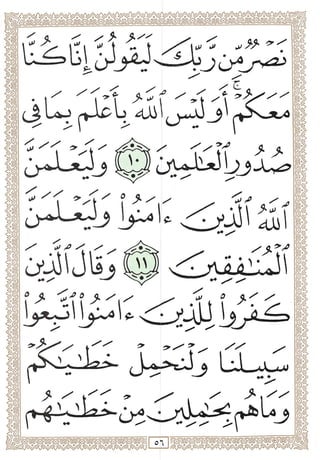 نَصْرٌ مِّن رَّبِّكَ لَيَقُولُنَّ إِنَّا كُنَّا
مَعَكُمْ ۚ أَوَلَيْسَ ٱللَّهُ بِأَعْلَمَ بِمَا فِي
صُدُورِ ٱلْعَٰلَمِينَ ١٠ وَلَيَعْلَمَنَّ
ٱللَّهُ ٱلَّذِينَ ءَامَنُوا۟ وَلَيَعْلَمَنَّ
ٱلْمُنَٰفِقِينَ ١١ وَقَالَ ٱلَّذِينَ
كَفَرُوا۟ لِلَّذِينَ ءَامَنُوا۟ ٱتَّبِعُوا۟
سَبِيلَنَا وَلْنَحْمِلْ خَطَٰيَٰكُمْ
وَمَا هُم بِحَٰمِلِينَ مِنْ خَطَٰيَٰهُم
٥٦